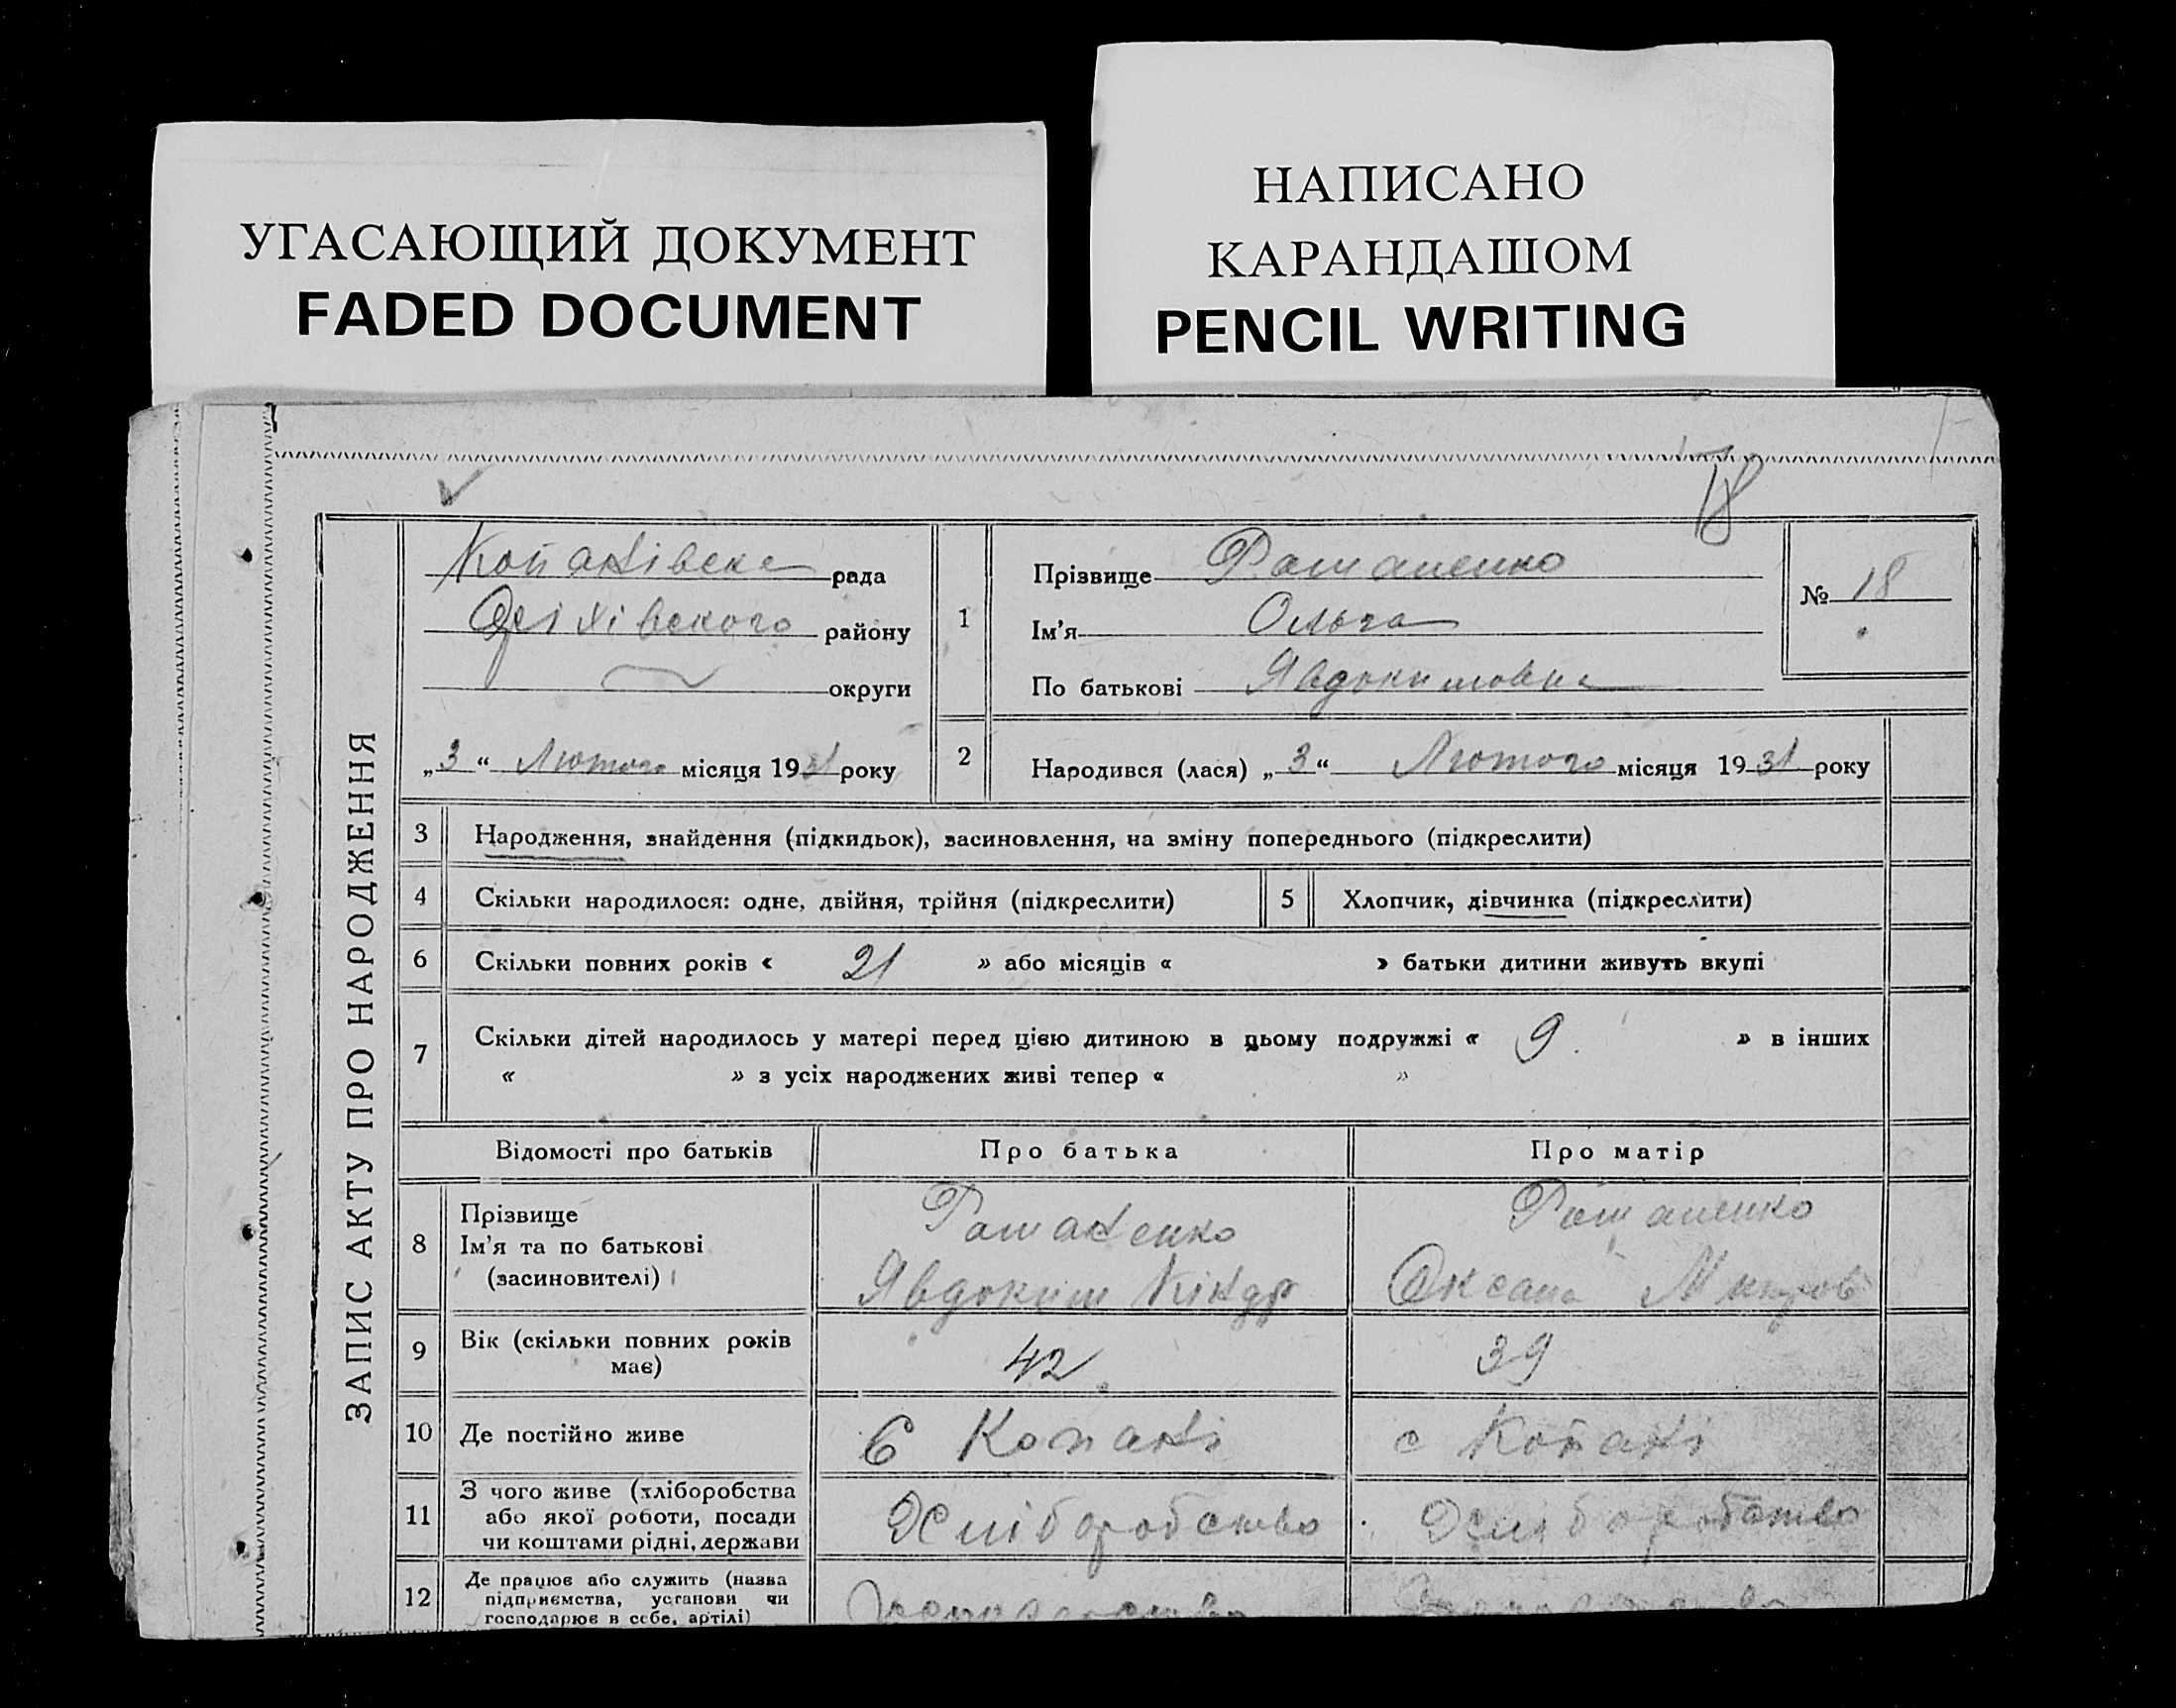 УГАСАЮЩИЙ ДОКУМЕНТ
FADED DOCUMENT
НАПИСАНО
КАРАНДАШОМ
PENCIL WRITING
18
ЗАПИС АКТУ ПРО НАРОДЖЕННЯ
Копанівська рада
Оріхівського району
округи
„3“ Лютого місяця 1931 року
1
Прізвище Фоманенко
Ім’я Ольга
По батькові Явдокимовна
№ 18
2
Народився (лася) „3“ Лютого місяця 1931 року
3 Народження, знайдення (підкидьок), засиновлення, на зміну попереднього (підкреслити)
4 Скільки народилося: одне, двійня, трійня (підкреслити)
5 Хлопчик, дівчинка (підкреслити)
6 Скільки повних років « 21 » або місяців « » батьки дитини живуть вкупі
7 Скільки дітей народилось у матері перед цією дитиною в цьому подружжі « 9. » в інших
« » з усіх народжених живі тепер « »
Відомості про батьків Про батька Про матір
8 Прізвище
Ім’я та по батькові
(засиновителі)
Явдоким Кіндр
Оксана
9 Вік (скільки повних років
має)
42
39
10 Де постійно живе
с Копані
с Копані
11 З чого живе (хліборобства
або якої роботи, посади
чи коштами рідні, держави
Хліборобство
Хліборобство
12 Де працює або служить (назва
підприємства, установи чи
господарює в себе, артілі)